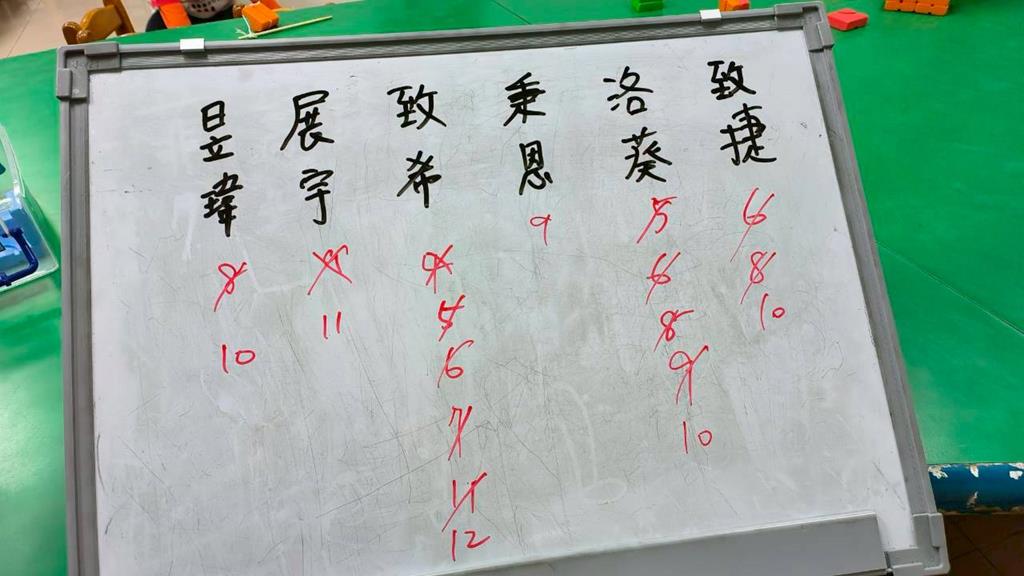 昱瑋
8
10
展宇
11
致希
5
6
7
11
12
秉恩
9
洛葵
5
6
8
9
10
致捷
6
8
10